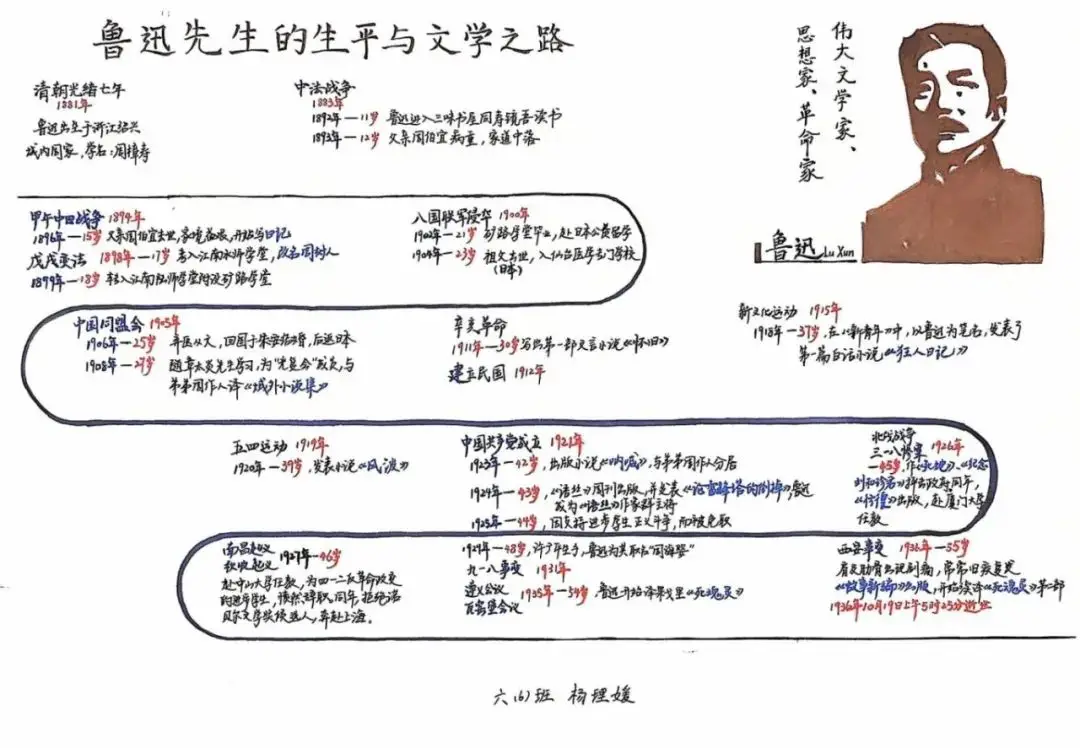 鲁迅先生的生平与文学之路
伟大文学家、
思想家、革命家
清朝光绪七年
1881年
鲁迅出生于浙江绍兴
城内周家,学名:周樟寿
中法战争
1883年
1892年—11岁 鲁迅进入三味书屋同寿镜吾读书
1893年—12岁 父亲周伯宜病重,家道中落
鲁迅 Lu Xun
甲午中日战争 1894年
1896年—15岁 父亲周伯宜去世,家境益艰,开始写日记
戊戌变法 1898年—17岁 考入江南水师学堂,改名周树人
1899年—18岁 转入江南陆师学堂附设矿路学堂
八国联军侵华 1900年
1902年—21岁 矿路学堂毕业,赴日本公费留学
1904年—23岁 祖父去世,入仙台医学专门学校
(日本)
中国同盟会 1905年
1906年—25岁 弃医从文,回国于朱安结婚,后返日本
1908年—27岁 随章太炎先生学习,为“光复会”成员,与
弟弟周作人译《域外小说集》
辛亥革命
1911年—30岁写出第一部文言小说《怀旧》
建立民国 1912年
新文化运动 1915年
1918年—37岁,在《新青年》中,以鲁迅为笔名,发表了
第一篇白话小说《狂人日记》
五四运动 1919年
1920年—39岁,发表小说《风波》
中国共产党成立 1921年
1923年—42岁,出版小说《呐喊》,与弟弟周作人分居
1924年—43岁,《语丝》周刊出版,并发表《论雷峰塔的倒掉》,鲁迅
成为《语丝》作家群主将
1925年—44岁,因支持进步学生正义斗争,而被免职
北伐战争
三一八惨案 1926年
—45岁,作《死地》、《纪念
刘和珍君》抨击政府同年,
《彷徨》出版,赴厦门大学
任教
南昌起义
秋收起义 1927年—46岁
赴中山大学任教,为四一二反革命政变
的进步学生,愤然辞职,同年,拒绝诺
贝尔文学奖候选人,奔赴上海。
1929年—48岁,许广平生子,鲁迅为其取名“周海婴”
九一八事变 1931年
遵义会议
瓦窑堡会议 1935年—54岁,鲁迅开始译果戈里《死魂灵》
西安事变 1936年—55岁
肩及肋骨出现剧痛,常常旧疾复发
《故事新编》出版,开始续译《死魂灵》第二部
1936年10月19日上午5时25分逝世
六(6)班 杨理媛